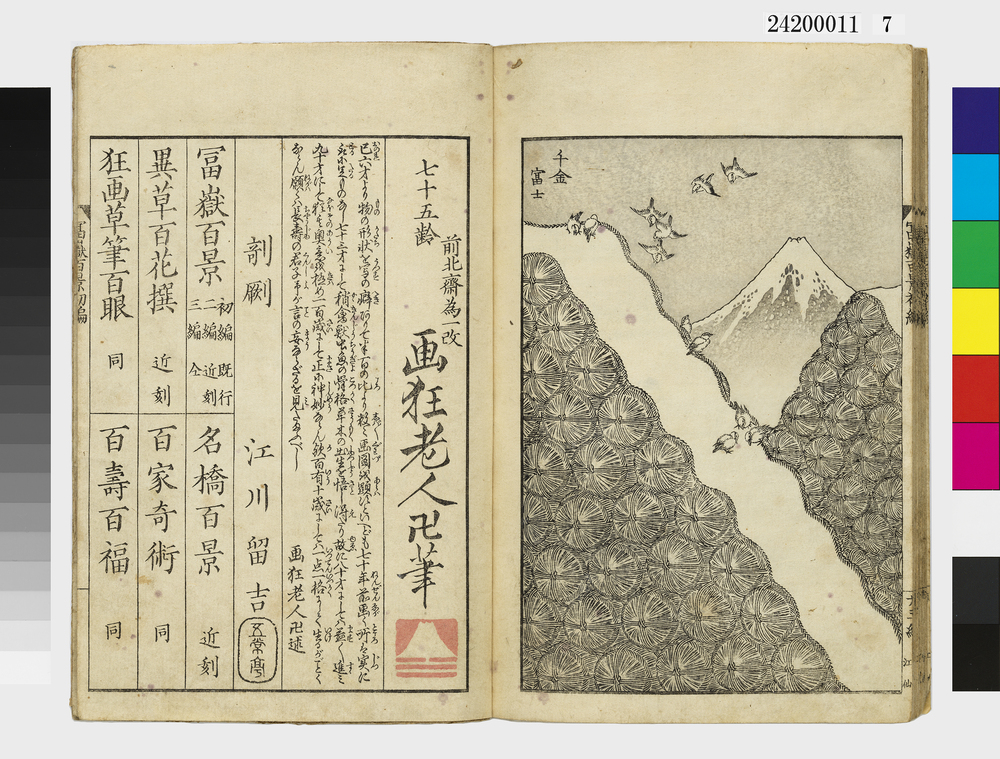 24200011 7
千金
富士
七十五齢
前北斎為一改
画狂老人卍筆
己六才より物の形状を写の癖ありて半百の比より数々画図を顕すといへども七十年前画く所は実に
取に足ものなし七十三才にして稍禽獣虫魚の骨格草木の出生を悟し得たり故に八十才にしては益々進み
九十才にして猶其奥意を極め一百歳にして正に神妙ならん歟百有十歳にしては一点一格にして生るがごとく
ならん願くは長寿の君子予が言の妄ならざるを見たまふべし
画狂老人卍述
剞劂 江川留吉 五常亭
冨嶽百景 初編 既行
二編 近刻
三編 仝
名橋百景 近刻
異草百花撰 近刻
百家奇術 同
狂画草筆百眼 同
百壽百福 同
冨嶽百景初編